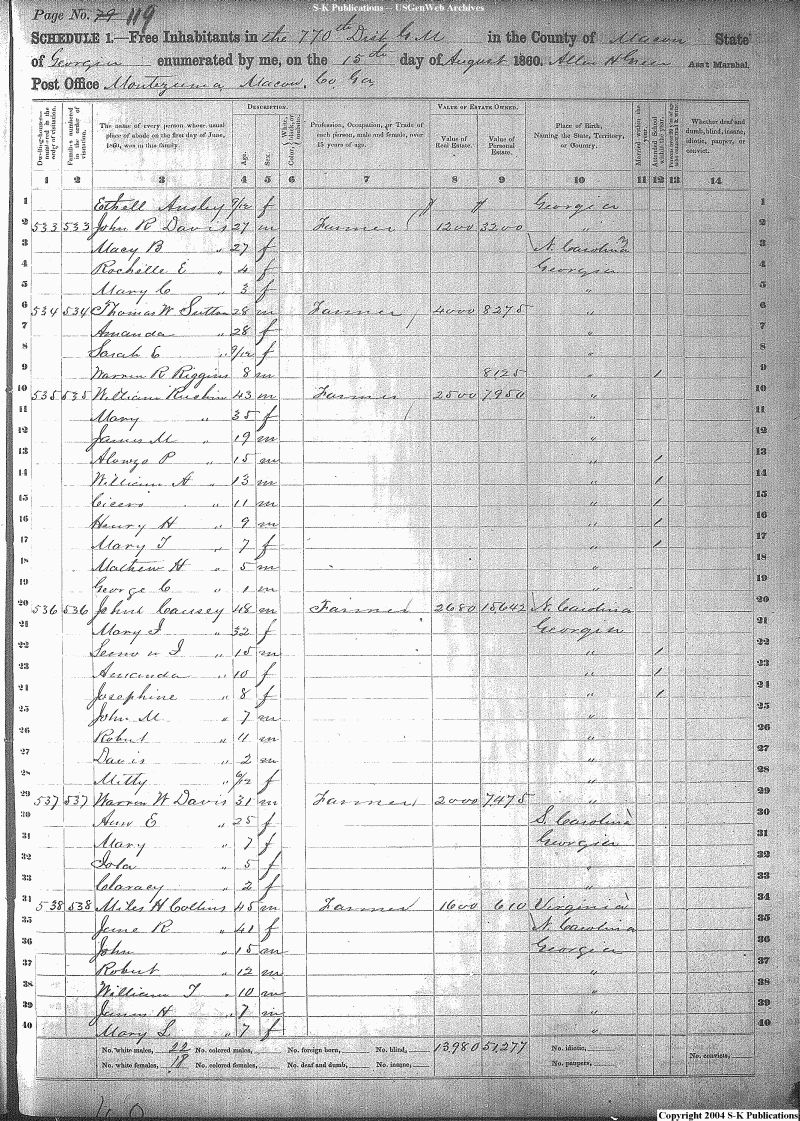 S-K Publications – USGenWeb Archives
Page No. 79 119
SCHEDULE 1.—Free Inhabitants in the 770th Dist G M in the County of Macon State
of Georgia enumerated by me, on the 15th day of August 1860. Allen H Greer Ass't Marshal.
Post Office Montezuma, Macon, Co Ga,
DESCRIPTION. VALUE OF ESTATE OWNED.
Dwelling-houses—numbered in the order of visitation. Families numbered in the order of visitation. The name of every person whose usual place of abode on the first day of June, 1860, was in this family. Age. Sex. Color, White, black, or mulatto. Profession, Occupation, or Trade of each person, male and female, over 15 years of age. Value of Real Estate. Value of Personal Estate. Place of Birth, Naming the State, Territory, or Country. Married within the year. Attended School within the year. Whether deaf and dumb, blind, insane, idiotic, pauper, or convict.
1 2 3 4 5 6 7 8 9 10 11 12 13 14
1 Ethell Ansley 9/12 f " " Georgia 1
2 533 533 John R Davis 27 m Farmer 1200 3200 " 2
3 Macy B " 27 f N. Carolina 3
4 Rochelle E " 4 f Georgia 4
5 Mary C " 3 f " 5
6 534 534 Thomas W Sutton 28 m Farmer 4000 8275 " 6
7 Amanda " 28 f " 7
8 Sarah E " 9/12 f " 8
9 Warren R Riggins 8 m 8125 " / 9
10 535 535 William Rushin 43 m Farmer 2500 7950 " 10
11 Mary " 35 f " 11
12 James M " 19 m " 12
13 Alonzo P " 15 m " / 13
14 William A " 13 m " / 14
15 Cicero " 11 m " / 15
16 Henry H " 9 m " / 16
17 Mary T " 7 f " / 17
18 Mathew H " 5 m " 18
19 George C " 1 m " 19
20 536 536 John Causey 48 m Farmer 2680 15642 N. Carolina 20
21 Mary J " 32 f Georgia 21
22 J " 15 m " / 22
23 Amanda " 10 f " / 23
24 Josephine " 8 f " / 24
25 John M " 7 m " 25
26 Robert " 11 m " 26
27 Davis " 2 m " 27
28 Mitty " 6/12 f " 28
29 537 537 Warren W Davis 31 m Farmer 2000 7475 " 29
30 Ann E " 25 f S. Carolina 30
31 Mary " 7 f Georgia 31
32 Iola " 5 f " 32
33 Claracy " 2 f " 33
34 538 538 Miles H Collins 45 m Farmer 1600 610 Virginia 34
35 Jane R " 41 f N. Carolina 35
36 John " 15 m Georgia 36
37 Robert " 12 m " 37
38 William T " 10 m " 38
39 James H " 7 m " 39
40 Mary L " 7 f " 40
No. white males, 22 No. colored males, No. foreign born, No. blind, 13,980 51,277 No. idiotic,
No. white females, 18 No. colored females, No. deaf and dumb, No. insane, No. paupers, No. convicts,
Copyright 2004 S-K Publications